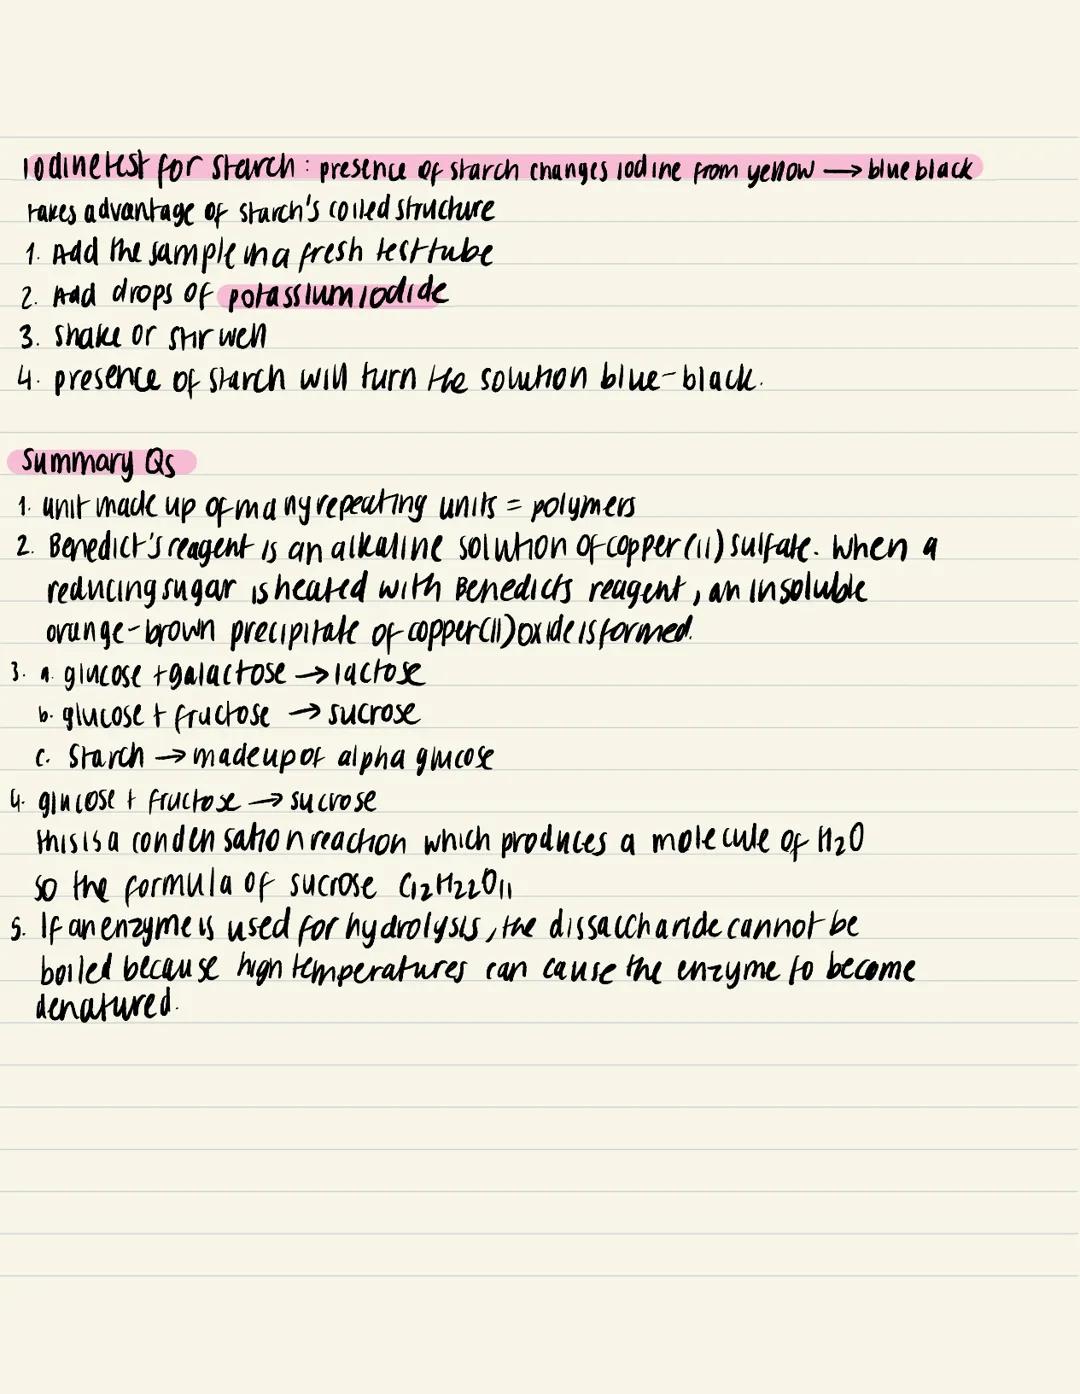 Iodine test for starch : presence of starch changes iodine from yellow → blue black
takes advantage of starch's coiled structure
1. Add the sample in a fresh test tube
2. Add drops of potassium iodide
3. shake or stir well
4. presence of starch will turn the solution blue-black.
Summary Qs
1. unit made up of many repeating units = polymers
2. Benedict's reagent is an alkaline solution of copper (II) sulfate. When a
reducing sugar is heated with Benedicts reagent, an insoluble
orange-brown precipitate of copper(II) oxide is formed.
3. a. glucose + galactose → lactose
b. glucose + fructose → sucrose
c. Starch → made up of alpha glucose
4. glucose + fructose → sucrose
this is a condensation reaction which produces a molecule of H₂O
so the formula of sucrose C₁₂H₂₂O₁₁
5. If an enzyme is used for hydrolysis, the dissaccharide cannot be
boiled because high temperatures can cause the enzyme to become
denatured.